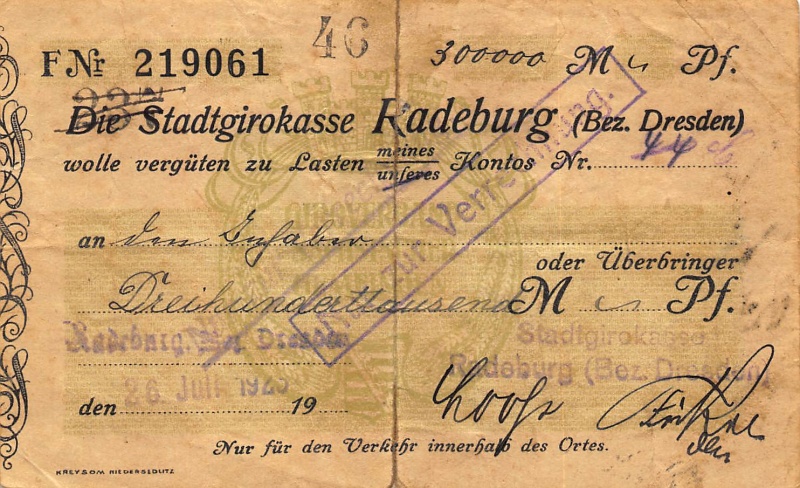 46
F Nr 219061
300000 M Pf.
Die Stadtgirokasse Radeburg (Bez. Dresden)
wolle vergüten zu Lasten meines
unseres Kontos Nr. 44
Nur zur Verrechnung.
an den Inhaber
oder Überbringer
Dreihunderttausend M Pf.
Radeburg, Bez. Dresden
Stadtgirokasse
Radeburg (Bez. Dresden)
26. Juli 1923
den 19
Nur für den Verkehr innerhalb des Ortes.
KREYSOM NIEDERSEDLITZ